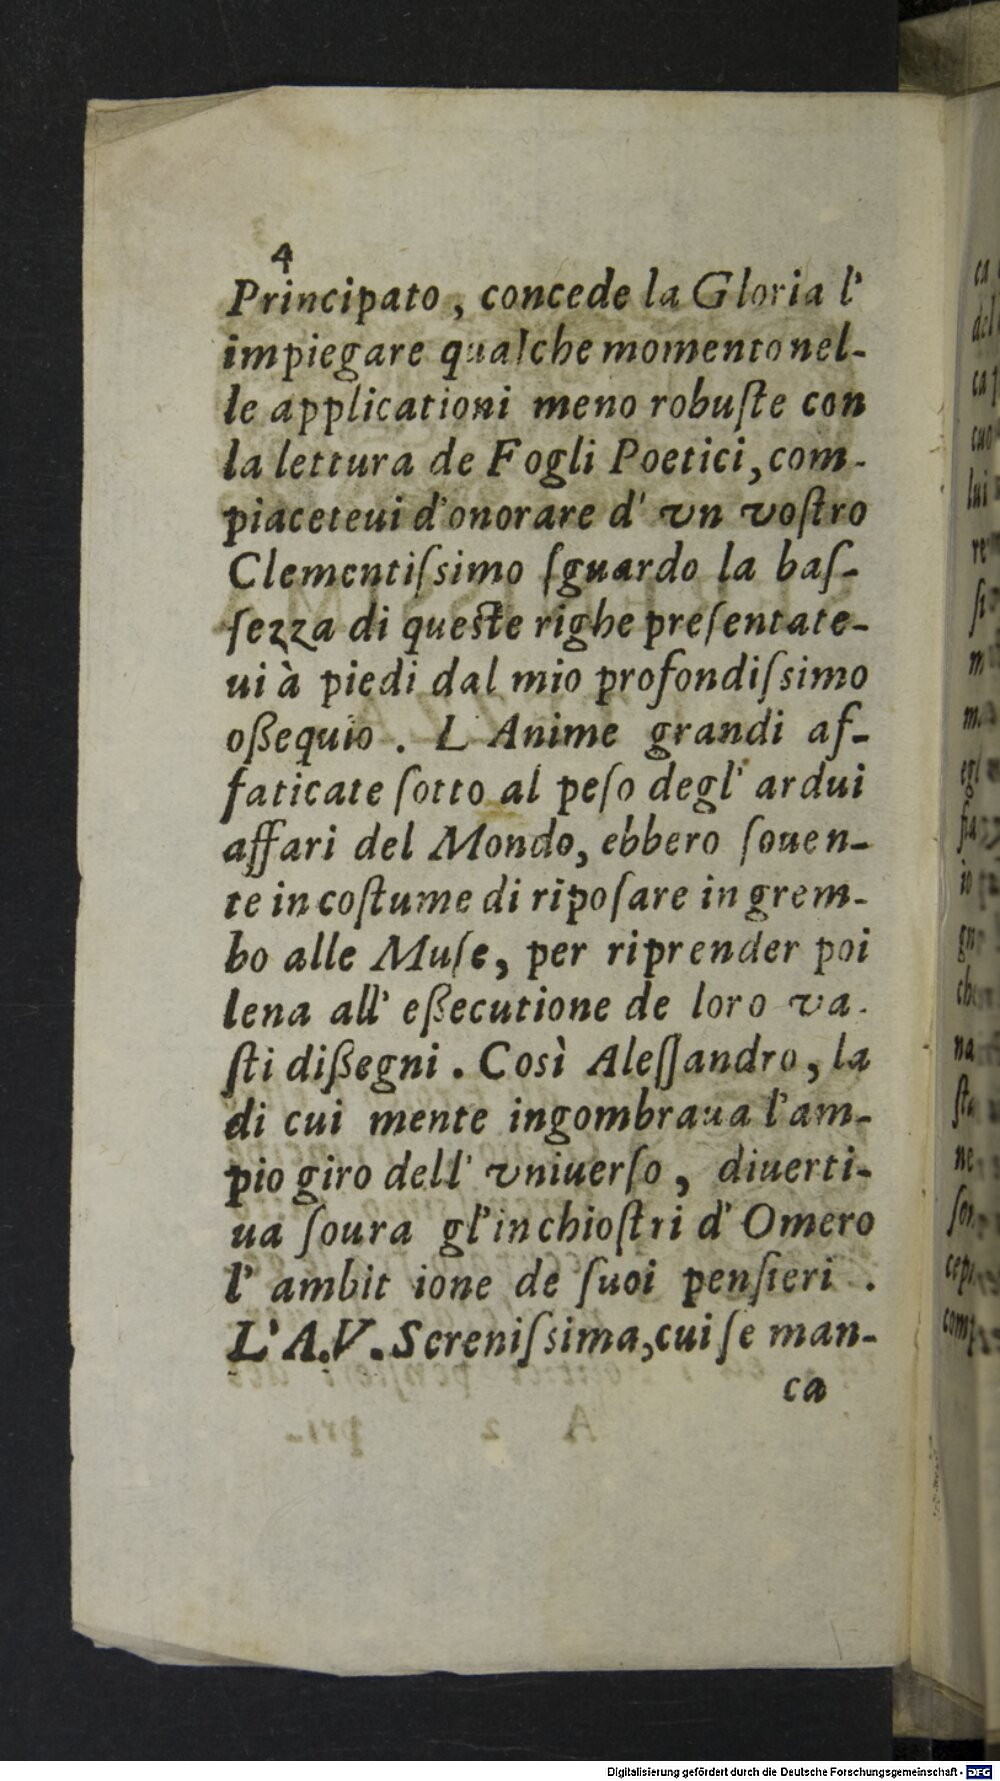 4
Principato, concede la Gloria l'
impiegare qualche momento nel-
le applicationi meno robuſte con
la lettura de Fogli Poetici, com-
piaceteui d'onorare d' vn voſtro
Clementiſsimo ſguardo la baſ-
ſezza di queſte righe preſentate-
ui à piedi dal mio profondiſsimo
oßequio. L Anime grandi af-
faticate ſotto al peſo degl' ardui
affari del Mondo, ebbero ſouen-
te in coſtume di ripoſare in grem-
bo alle Muſe, per riprender poi
lena all' eßecutione de loro va-
ſti dißegni. Così Aleſſandro, la
di cui mente ingombraua l'am-
pio giro dell' vniuerſo, diuerti-
ua ſoura gl'inchioſtri d' Omero
l' ambit ione de ſuoi penſieri.
L'A.V. Sereniſsima, cui ſe man-
ca
Digitalisierung gefördert durch die Deutsche Forschungsgemeinschaft - DFG